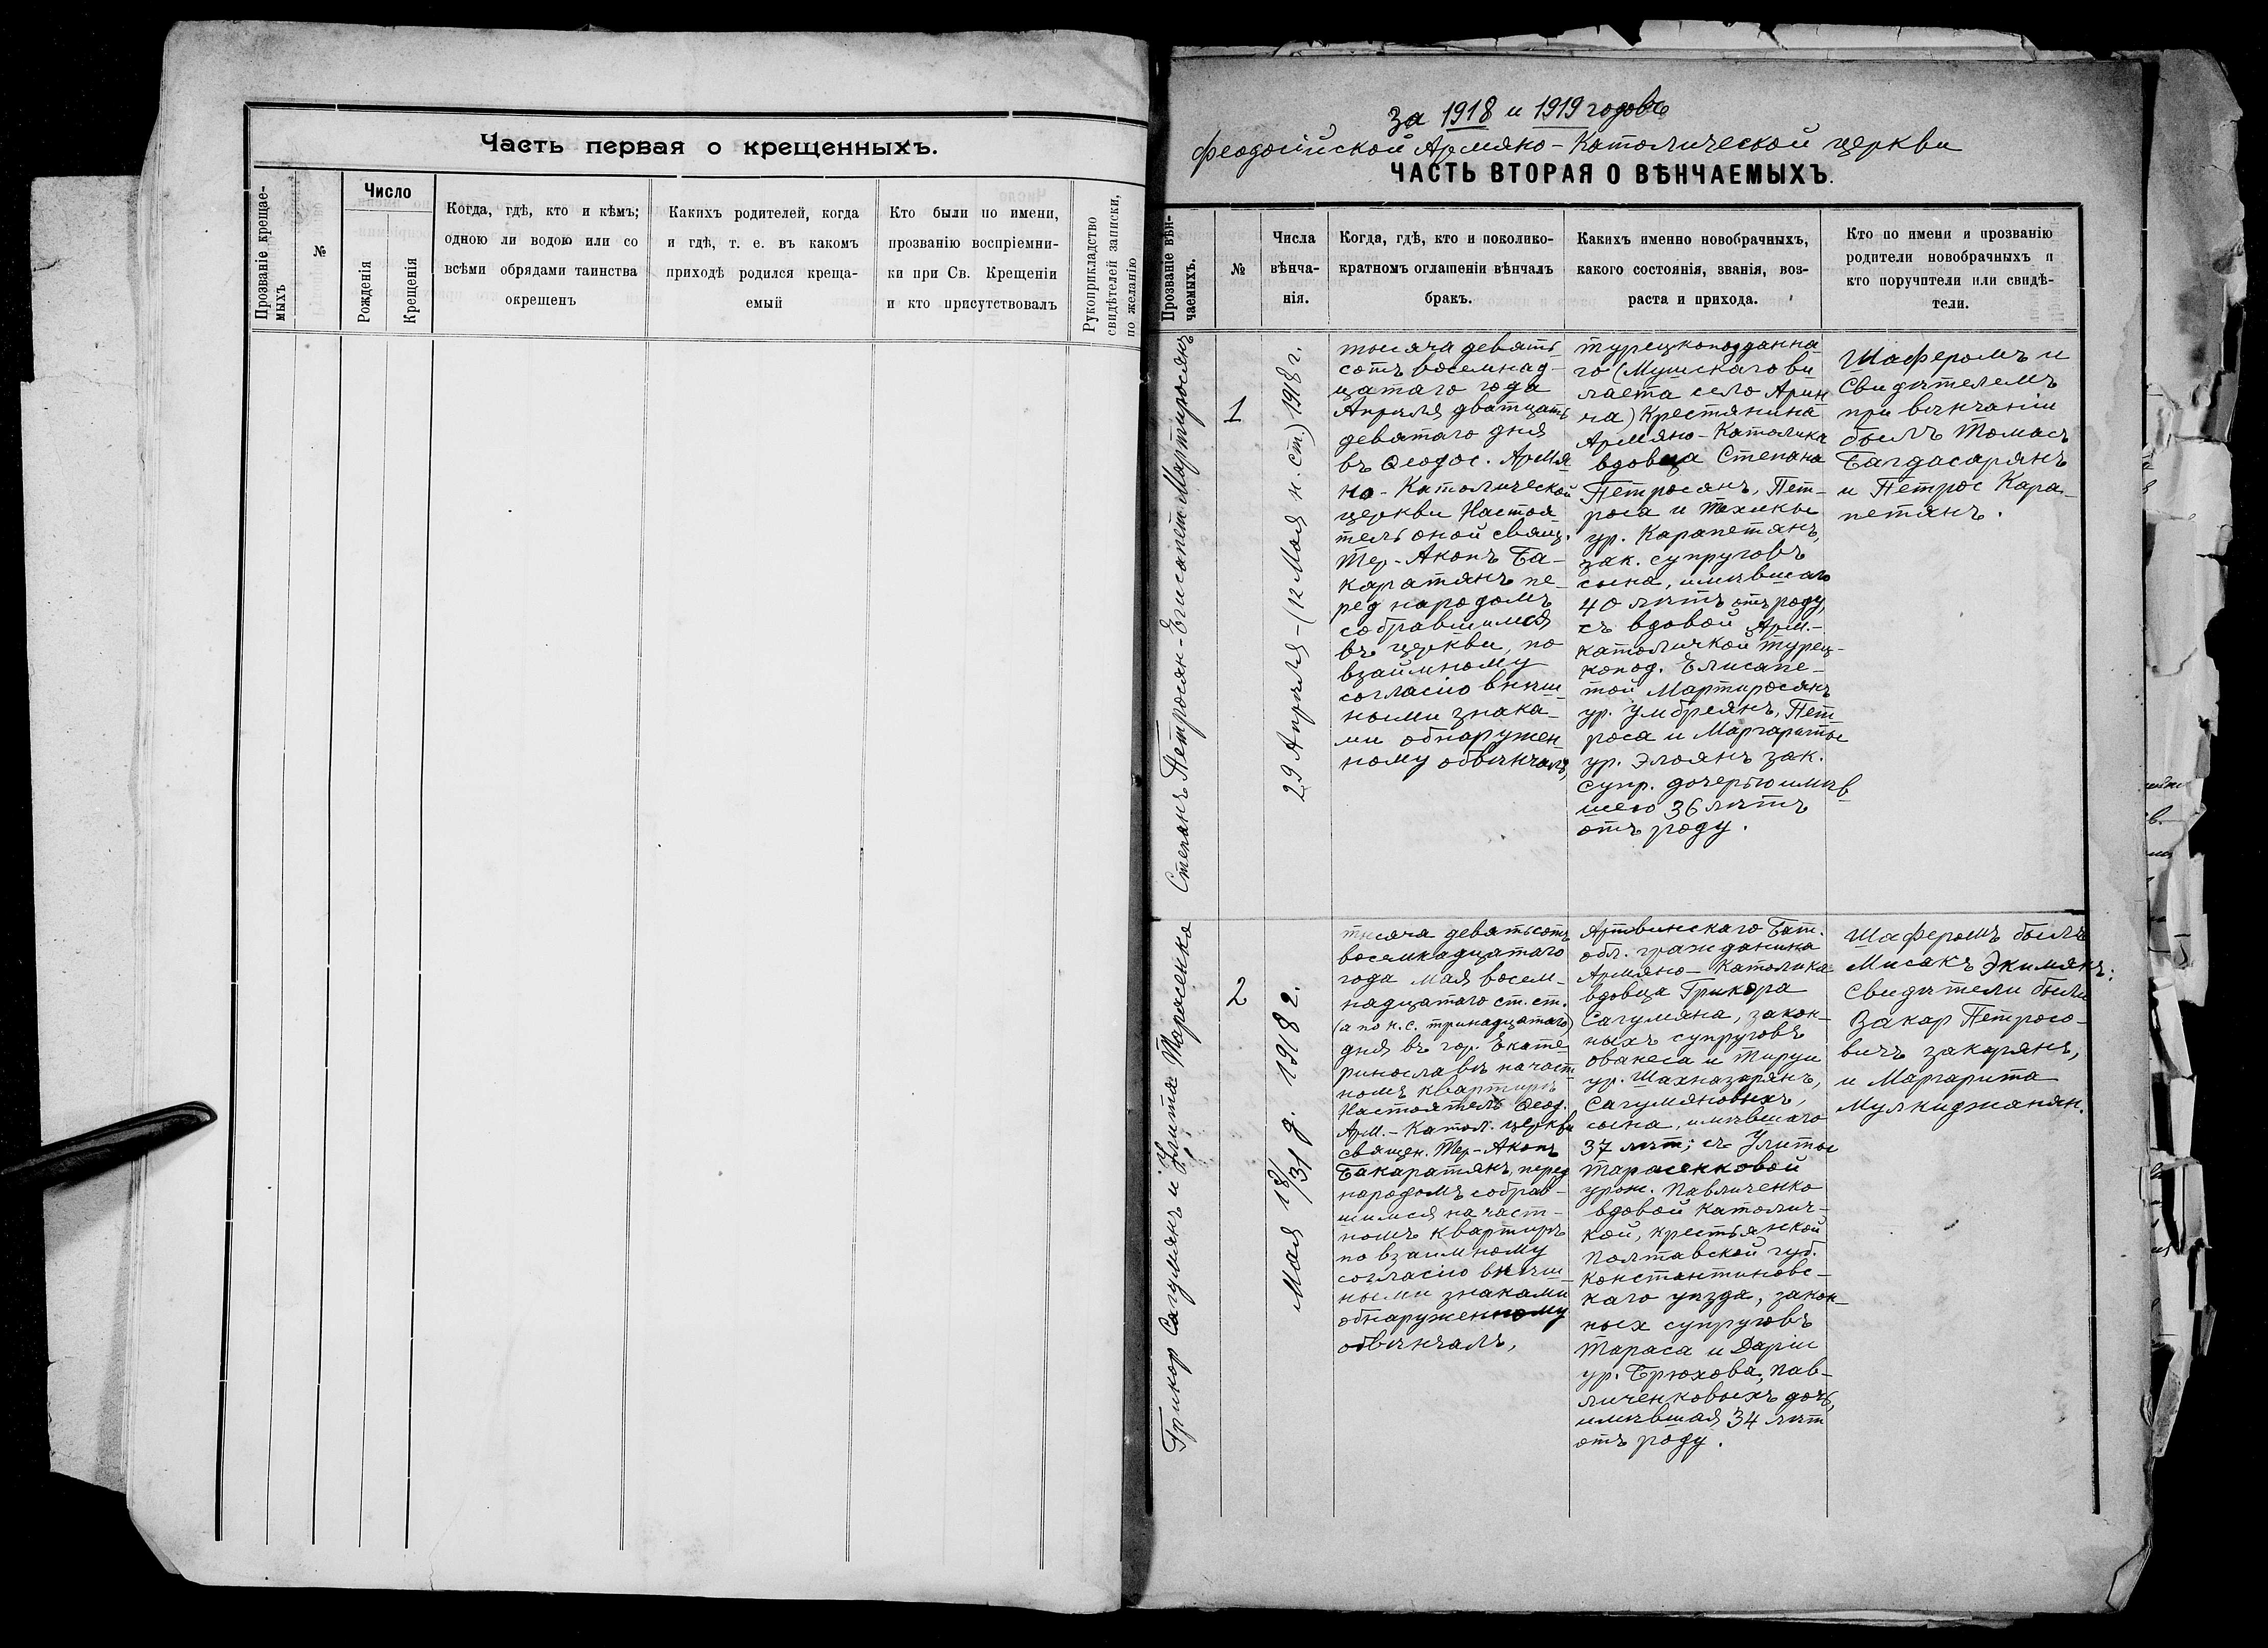 Часть первая о крещенныхъ.
Прозваніе крещае-
мыхъ
№
Число
Рожденія
Крещенія
Когда, гдѣ, кто и кѣмъ;
одною ли водою или со
всѣми обрядами таинства
окрещенъ
Какихъ родителей, когда
и гдѣ, т. е. въ какомъ
приходѣ родился креща-
емый
Кто были по имени,
прозванію воспріемни-
ки при Св. Крещеніи
и кто присутствовалъ
Рукоприкладство
свидѣтелей записки,
по желанію
За 1918 и 1919 годовъ
Феодосійской Армяно-Католической церкви
ЧАСТЬ ВТОРАЯ О ВѢНЧАЕМЫХЪ.
Прозваніе вѣн-
чаемыхъ.
№
Числа
вѣнча-
нія.
Когда, гдѣ, кто и поколико-
кратномъ оглашеніи вѣнчалъ
бракъ.
Какихъ именно новобрачныхъ,
какого состоянія, званія, воз-
раста и прихода.
Кто по имени и прозванію
родители новобрачныхъ и
кто поручители или свидѣ-
тели.
Степанъ Петросян - Егисапет Мартиросянъ
1
29 Апрѣля - (12 Мая н. ст.) 1918 г.
тысяча девять
сотъ восемнад-
цатаго года
Апрѣля дватцать
девятаго дня
въ Ѳеодос. Армя
но-Католической
церкви Настоя
тель оной свящ.
Тер-Акопъ Ба-
каратянъ пе-
ред народомъ
собравшимся
въ церкви, по
взаимному
согласію внѣш-
ными знака-
ми обнаружен-
ному обвѣнчалъ,
турецкоподданна
го (Мушскаго ви
лаета село Арин
ча) Крестянина
Армяно-Католика
вдовца Степана
Петросянъ, Пет-
роса и
ур. Карапетянъ,
зак. супруговъ
сына, имѣвшаго
40 лѣтъ отъ роду,
съ вдовой Арм.-
католичкой турец-
копод. Елисапе-
той Мартиросянъ
ур. Умбреянъ, Пет
роса и Маргариты
ур. Элоянъ зак.
супр. дочерью имѣв
шею 36 лѣтъ
отъ роду.
Шаферомъ и
Свидѣтелемъ
при вѣнчаніи
былъ Томасъ
Багдасарянъ
и Петрос Кара-
петянъ.
Грикор Сагумянъ и Улита Тарасенко
2
Мая 18/31 д. 1918 г.
тысяча девятьсотъ
восемнадцатаго
года мая восем-
надцатаго ст. ст.
(а по н. с. тринадцатаго)
дня въ гор. Екате
ринославѣ на част
номъ квартирѣ
Настоятель Ѳеод.
Арм.-Катол. церкви
священ. Тер-Акопъ
Бакаратянъ, перед
народомъ собрав-
шимся на част-
номъ квартирѣ
по взаимному
согласію внѣш-
ными знаками
обнаруженному
обвѣнчалъ,
Артвинскаго Бат.
обл. гражданина
Армяно-Католика
вдовца Грикора
Сагумяна, закон-
ныхъ супруговъ
Ованеса и Тируи
ур. Шахназарянъ,
Сагумяновыхъ,
сына, имѣвшаго
37 лѣт; съ Улитою
Тарасенковой
урож. Павличенко
вдовой католич-
кой, крестьянкой
Полтавской губ.
Константиновс-
каго уѣзда, закон-
ных супруговъ
Тараса и Даріи
ур. Брюхова, Пав-
личенковыхъ дочь,
имѣвшая 34 лѣт
отъ роду.
Шаферомъ былъ
Мисакъ Экимянъ:
Свидѣтели были
Закар Петросо-
вичъ Закарянъ,
и Маргарита
Мулкиджанян.